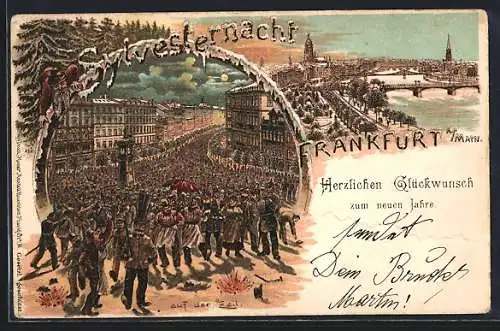 Sylvesternacht
FRANKFURT a/MAIN.
Herzlichen Glückwunsch
zum neuen Jahre.
sendet
Dein Bruder
Martin!
auf der Zeil.